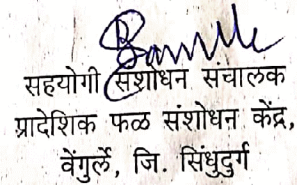 सहयोगी संशोधन संचालक
प्रादेशिक फळ संशोधन केंद्र,
वेंगुर्ले, जि. सिंधुदुर्ग